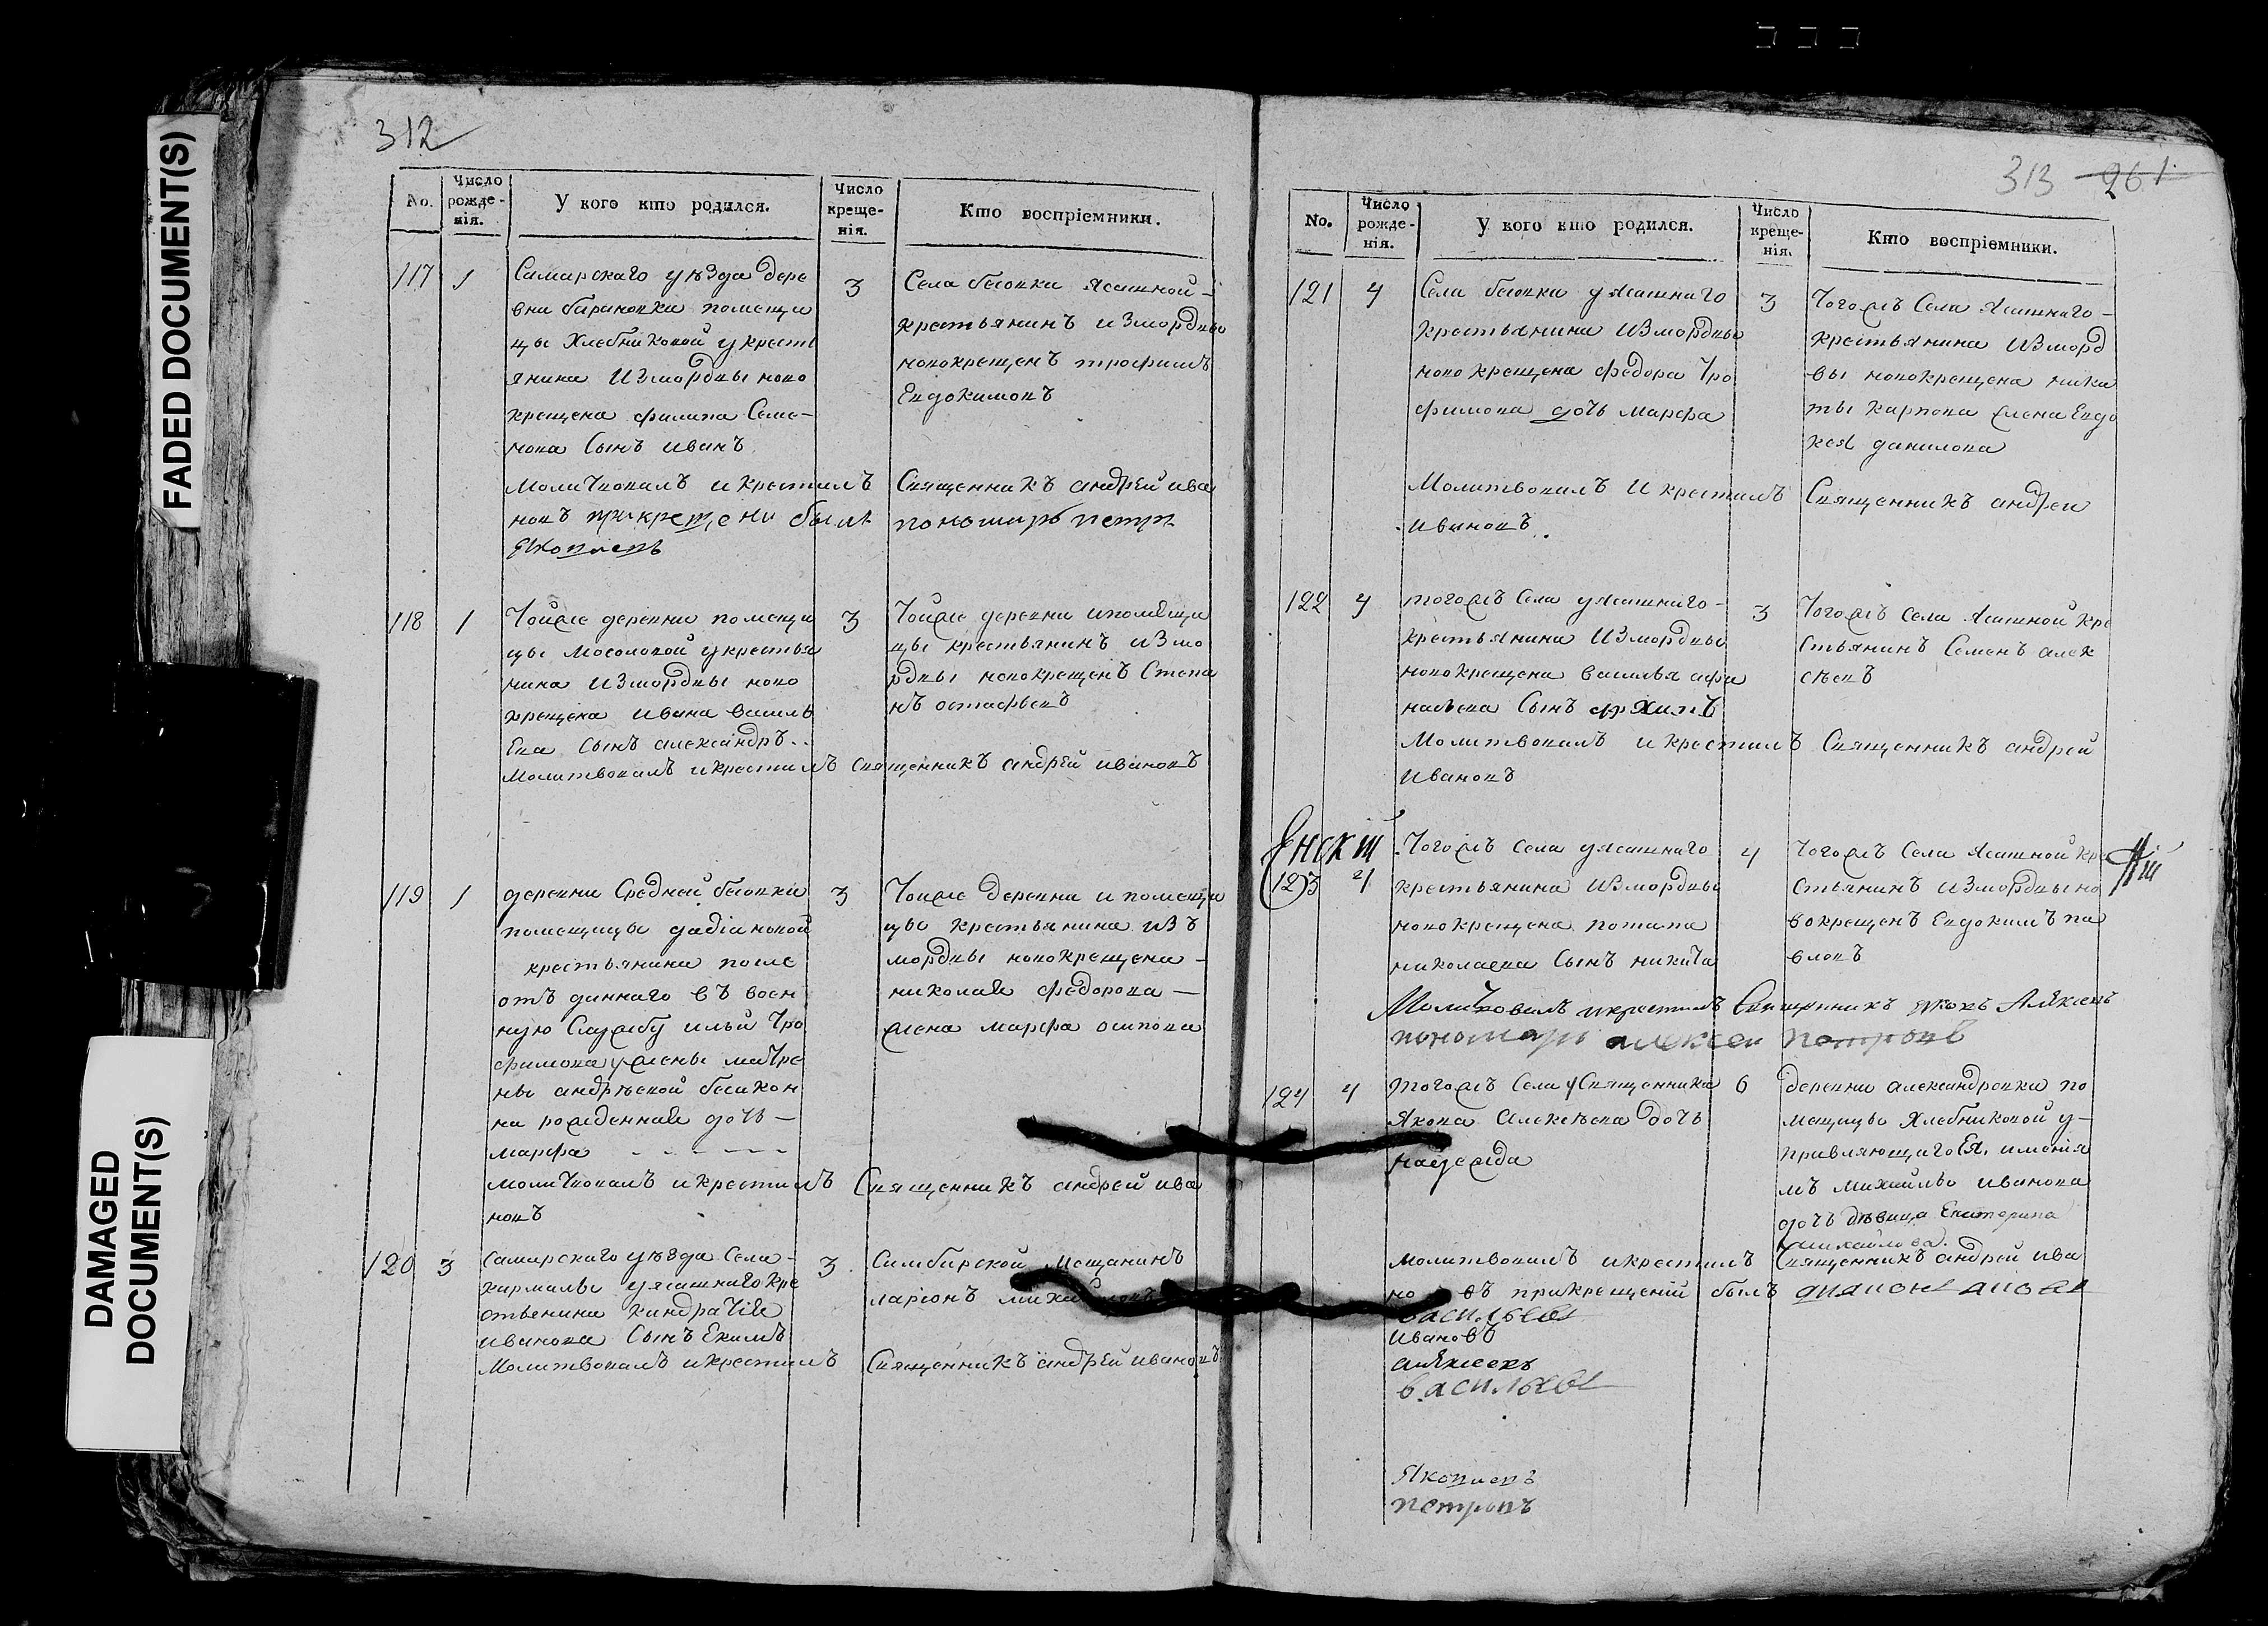 FADED DOCUMENT(S)
DAMAGED DOCUMENT(S)
312
No.
Число рожде-нія.
У кого кто родился.
Число креще-нія.
Кто воспріемники.
117 1
Самарскаго уѣзда дере
вни барановки помещи
цы Хлебниковой у крестъ
янина Измордвы ново
крещена филипа Семе-
нова Сынъ иванъ
3
Села бесовки Ясашной
крестьянинъ измордвы
новокрещенъ трофимъ
Евдокимовъ
Молитвовалъ и крестилъ Священникъ андрей ива
новъ при крещени былъ пономарь петръ
Яковлевъ
118 1
Тойже деревни помещи
цы Мосоловой у крестья
нина измордвы ново
крещена ивана василь
Ева Сынъ александръ
3
Тойже деревни ипомещи
цы крестьянинъ измо
рдвы новокрещенъ Степа
нъ остафьевъ
Молитвовалъ икрестилъ Священникъ андрей ивановъ
119 1
деревни Средней бесовки
помещицы дадіановой
крестьянина после
отъ даннаго въ воен
ную Службу ильи Тро
фимова у жены матре
ны андрѣевой
на рожденная дочь —
марфа
3
Тоиже деревни и помещи
цы крестьянина изъ
мордвы новокрещена
николая федорова —
жена марфа осипова
Молитвовалъ икрестилъ Священникъ андрей ива
новъ
120 3
Самарскаго уѣзда Села
кармалы у ясашнаго кре
стьенина кандратія
иванова Сынъ Екимъ
3
Симбирской Мещанинъ
ларіонъ
Молитвовалъ икрестилъ Священникъ андрей ивановъ
313 261
No.
Число рожде-нія.
У кого кто родился.
Число креще-нія.
Кто воспріемники.
121 4
Села бесовки у ясашнаго
крестьянина Измордвы
новокрещена федора Тро
фимова дочь марфа
3
Тогожъ Села Ясашнаго
крестьянина Изморд
вы новокрещена ники
ты карпова жена Евдо
кея данилова
Молитвовалъ И крестилъ Священникъ андреи
ивановъ
122 4
тогожъ Села у Ясашнаго
крестьянина Измордвы
новокрещена василья афа
насьева Сынъ
3
Тогожъ Села Ясашной кре
стьянинъ Семенъ алек
сѣевъ
Молитвовалъ икрестилъ Священникъ андрей
ивановъ
123 4
Тогожъ Села уясашнаго
крестьянина Измордвы
новокрещена потапа
николаева Сынъ никита
4
Тогожъ Села Ясашной кре
стьянинъ измордвы но
вокрещенъ Евдокимъ па
вловъ
Молитвовалъ икрестилъ Священникъ
пономарь алексеи петровъ
124 4
тогожъ Села у Священника
Якова Алексѣева дочь
надежда
6
деревни александровки по
мещицы Хлебниковой у-
правляющаго Ея имения
мъ михайлы иванова
дочь дѣвица Екатерина
михайлова
Молитвовалъ икрестилъ Священникъ андрей ива
новъ прикрещеній былъ
васильевъ
ивановъ
алексеевъ
васильевъ
Яковлевъ
петровъ